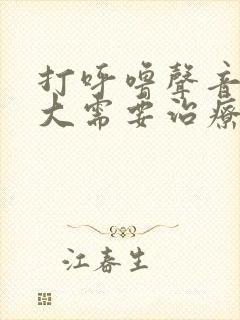 打呼嚕聲音
大需要治療
江春生